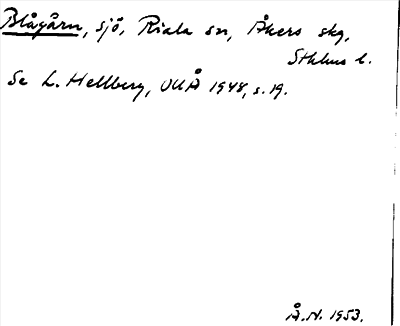 Blågårn, sjö, Riala sn, Åkers skg,
Sthlms l.
Se L. Hellberg, UUÅ 1948, s. 19.
Å. N. 1953.